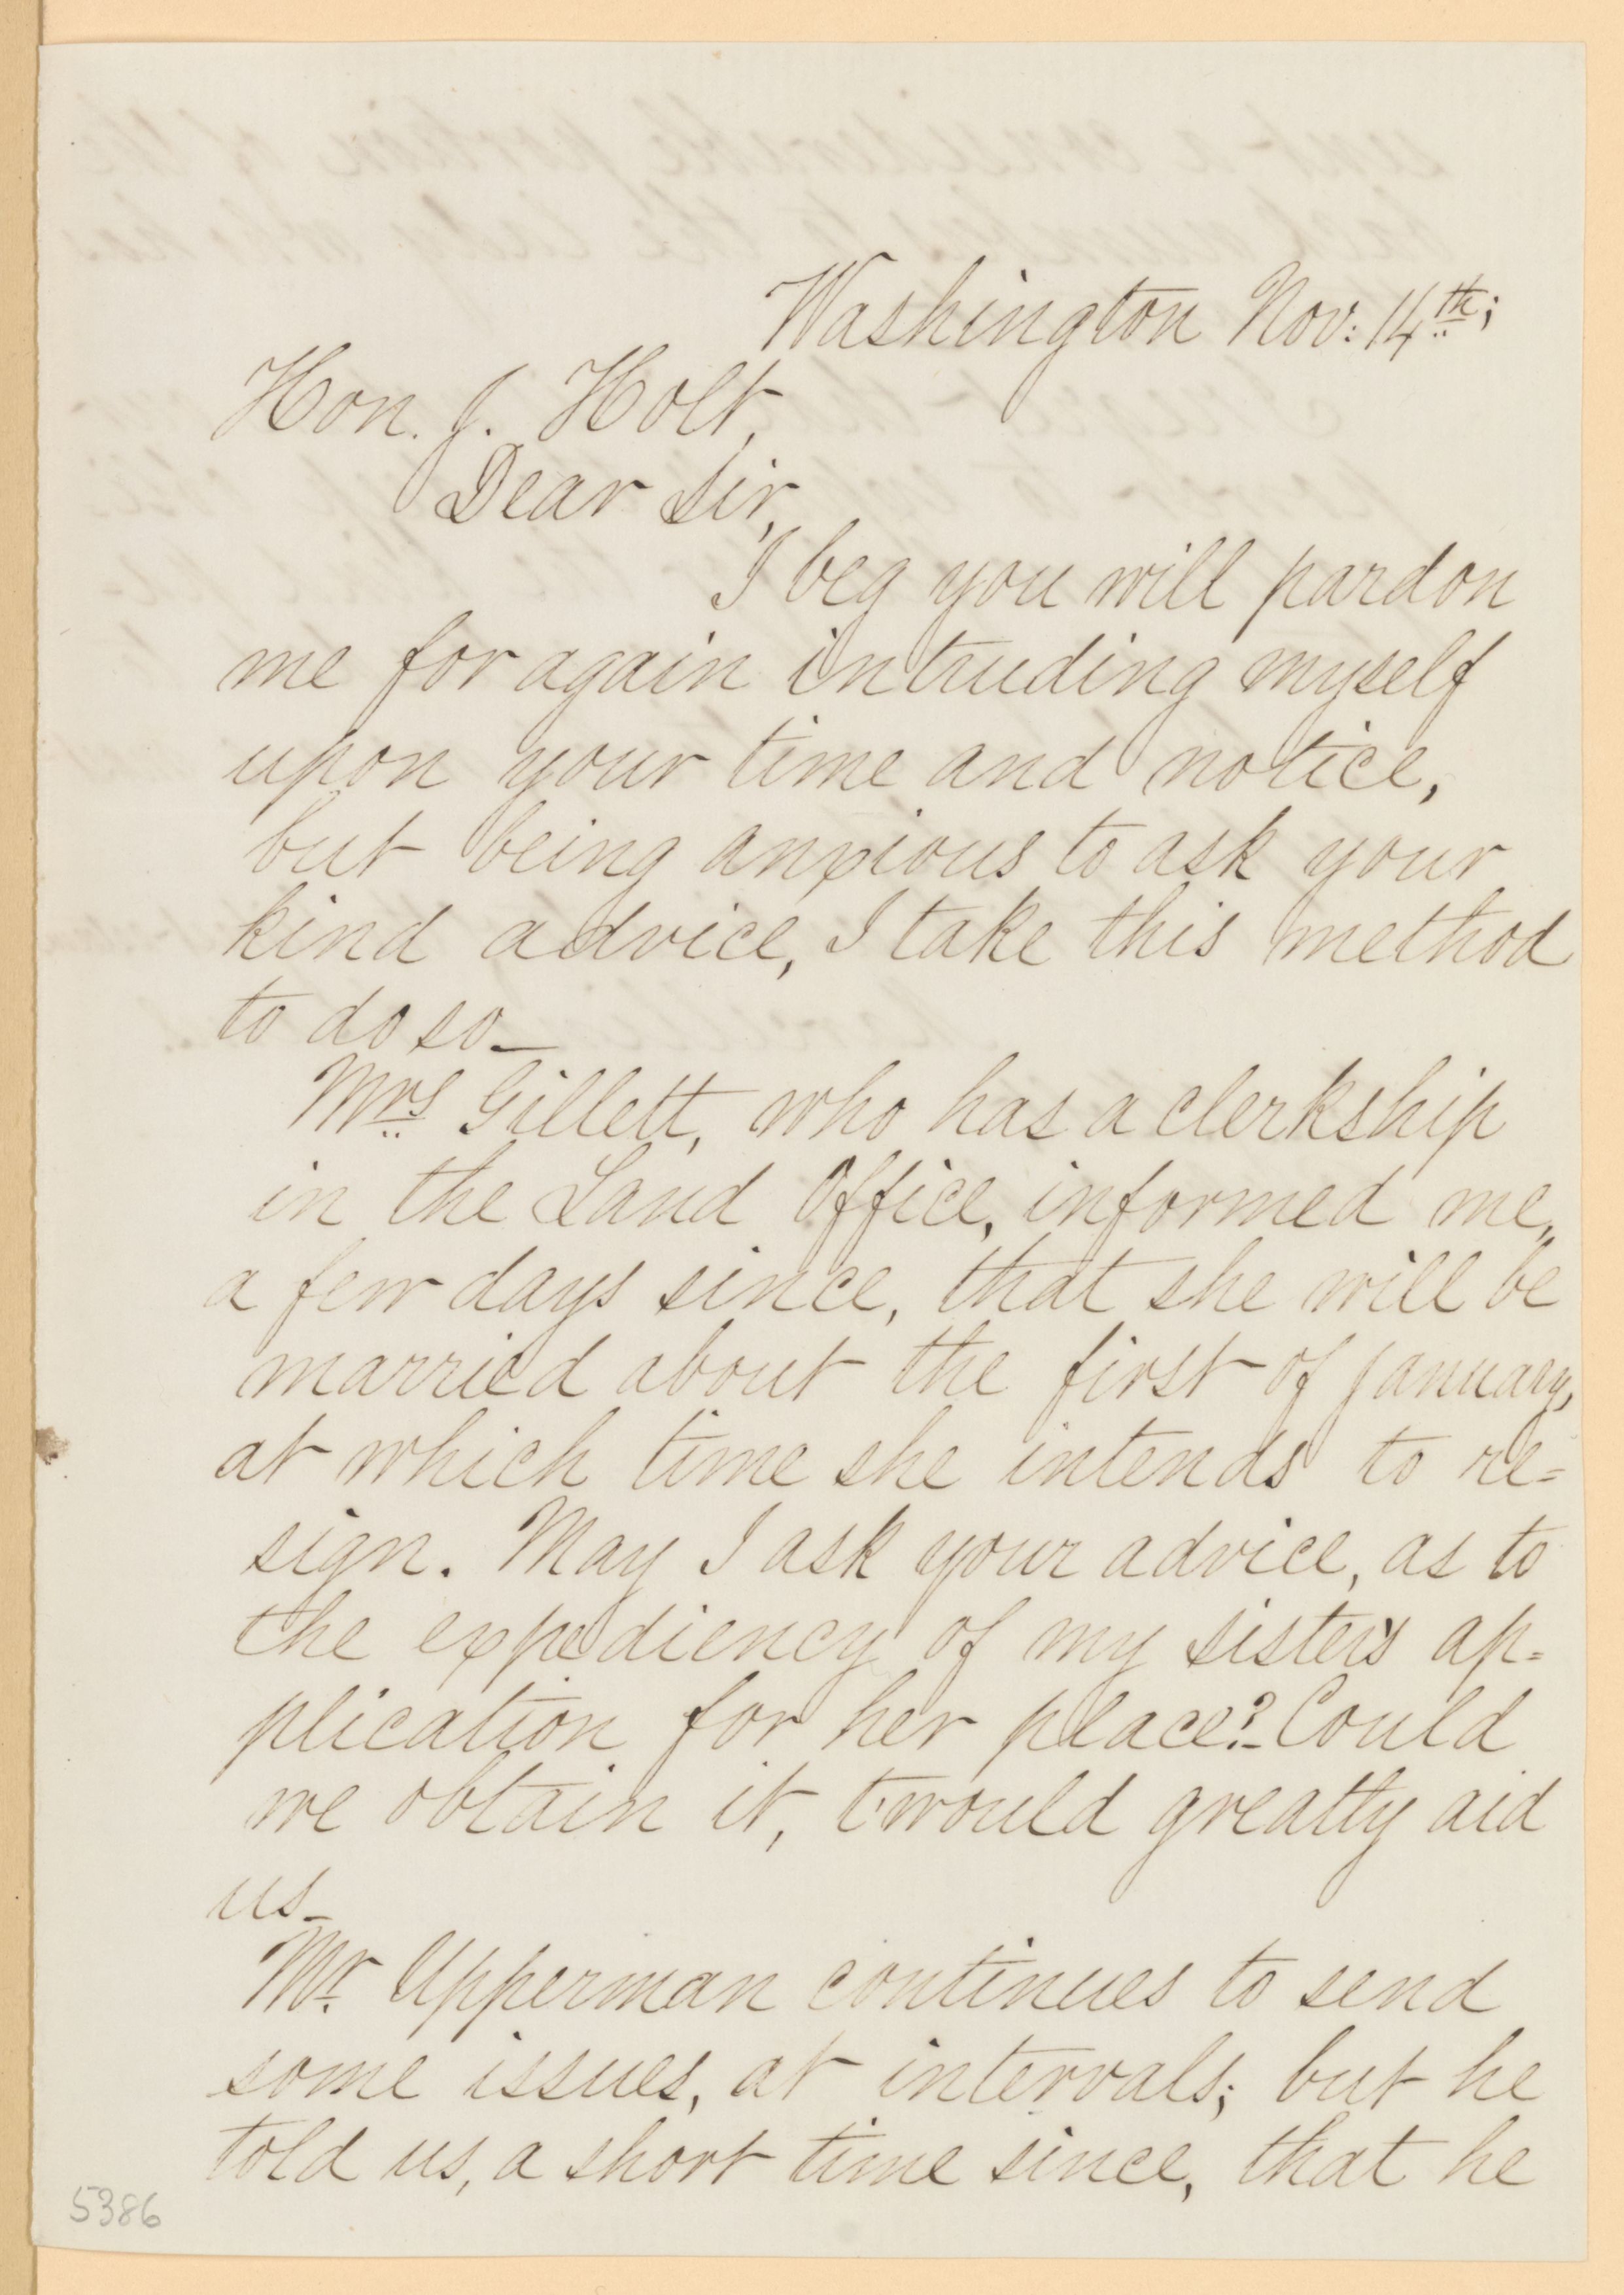 Washington Nov: 14th;
Hon. J. Holt,
Dear Sir,
I beg you will pardon
me for again intruding myself
upon your time and notice,
but being anxious to ask your
kind advice, I take this method
to do so_
Mrs Gillett, who has a clerkship
in the Land Office, informed me,
a few days since, that she will be
married about the first of January,
at which time she intends to re=
sign. May I ask your advice, as to
the expediency of my sister's ap=
plication for her place?_ Could
we obtain it, t'would greatly aid
us_
Mr. Upperman continues to send
some issues, at intervals; but he
told us, a short time since, that he
5386